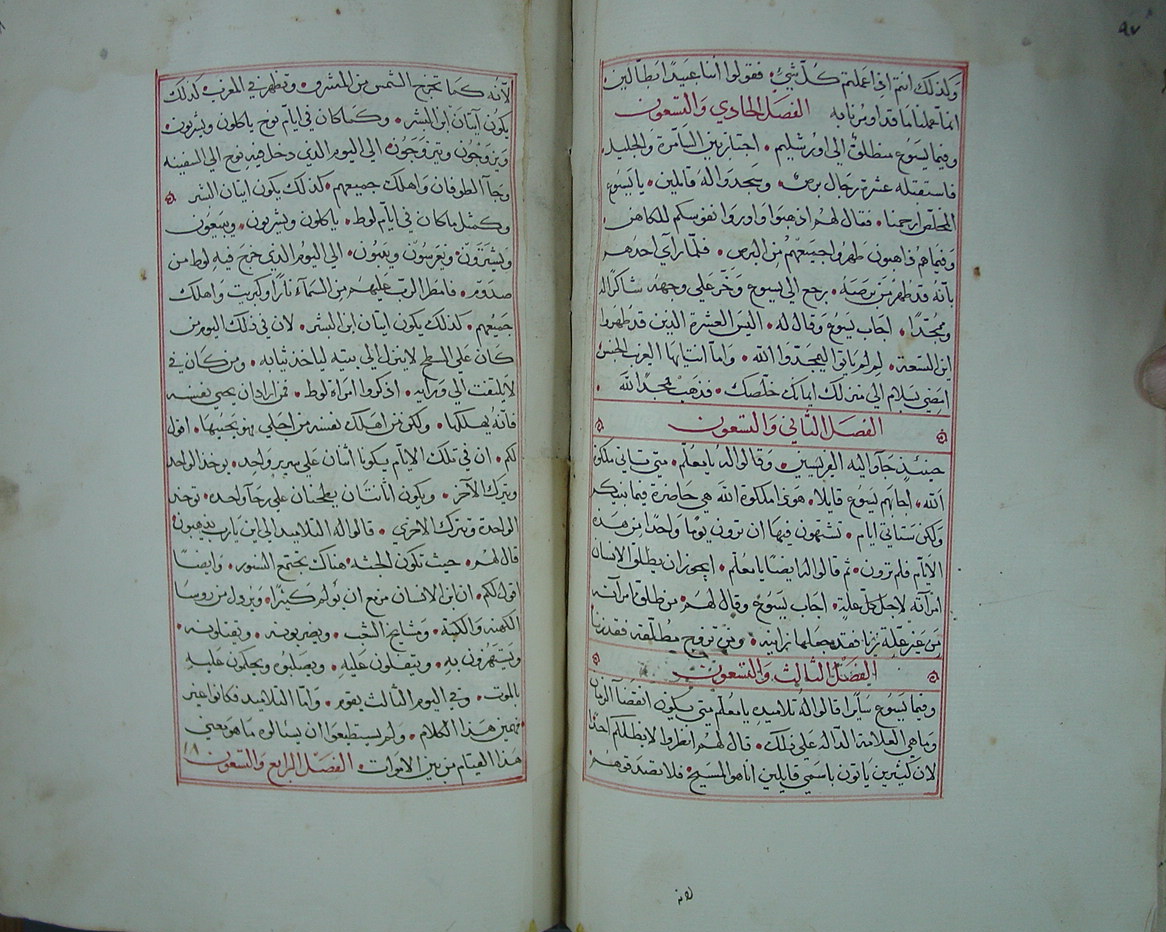 ٩٧
وكذلك انتم اذا عملتم كل شي، فقولوا اننا عبيدا بطالين
انما عملنا ما قد اومرنا به الفصل الحادي والتسعون
وفيما يسوع منطلق الي اورشليم. اجتاز بين السامرة والجليل.
فاستقبله عشرة رجال برص. وسجدوا له قايلين. يا يسوع
المخلص ارحمنا. فقال لهم اذهبوا واوروا نفوسكم للكاهن
وفيما هم ذاهبون طهروا جميعهم من البرص. فلما راي احدهم
بانه قد طهر من برصه. رجع الي يسوع وخر علي وجهه شاكرا له
وممجدا. اجاب يسوع وقال له. اليس العشرة الذين قد طهروا
اين التسعة. لم لم ياتوا ليمجدوا الله. واما انت ايها الغريب الجنس
امضي بسلام الي منزلك ايمانك خلصك. فذهب ممجدا الله.
الفصل الثاني والتسعون
حينئذ جاوا اليه الفريسين. وقالوا له يا معلم. متي تاتي ملكوة
الله. اجابهم يسوع قايلا. هوذا ملكوة الله هي حاضرة فيما بينكم
ولكن ستاتي ايام. تشتهون فيها ان ترون يوما واحدا من هذه
الايام فلم ترون. ثم قالوا له ايضا يا معلم. ايجوز ان يطلق الانسان
امراته لاجل كل علة. اجاب يسوع وقال لهم. من طلق امراته
من غير علة زنا فقد جعلها زانية. ومن تزوج مطلقة فقد زنا
الفصل الثالث والتسعون
وفيما يسوع سايرا قالوا له تلاميذه يا معلم متي يكون انقضا الزمان
وما هي العلامة الدالة علي ذلك. قال لهم انظروا لا يضلكم احدا
لان كثيرين ياتون باسمي قايلين انا هو المسيح. فلا تصدقوهم
لانه
لانه كما تخرج الشمس من المشرق. وتظهر في المغرب كذلك
يكون اتيان ابن البشر. وكما كان في ايام نوح ياكلون ويشربون.
ويزوجون ويتزوجون. الي اليوم الذي دخل فيه نوح الي السفينة
وجا الطوفان واهلك جميعهم. كذلك يكون اتيان ابن البشر
وكمثل ما كان في ايام لوط. ياكلون ويشربون. ويبيعون
ويشترون ويغرسون ويبنون. الي اليوم الذي خرج فيه لوط من
صدوم. فامطر الرب عليهم من السماء نارا وكبريت واهلك
جميعهم. كذلك يكون اتيان ابن البشر. لان في ذلك اليوم من
كان علي السطح لا ينزل الي بيته لياخذ ثيابه. ومن كان في
لا يلتفت الي ورايه. اذكروا امراة لوط. فمن اراد ان يحيي نفسه
فانه يهلكها. ولكن من اهلك نفسه من اجلي فهو يحييها. اقول
لكم. ان في تلك الايام يكونا اثنان علي سرير واحد. يوخذ الواحد
ويترك الاخر. ويكون اثنتان يطحنان علي رحا واحد. توخذ
الواحدة ويترك الاخري. قالوا له التلاميذ الي اين يا رب يذهبون
قال لهم. حيث تكون الجثه. هناك يجتمع النسور. وايضا
اقول لكم. ان ابن الانسان مزمع ان يولم كثيرا. ويرذل من روسا
الكهنه والكتبة. ومشايخ الشعب. ويضربونه. ويقتلونه.
ويستهزون به. ويتفلون عليه. ويصلبوه ويحكمون عليه
بالموت. وفي اليوم الثالث يقوم. واما التلاميذ فكانوا غير
فهمين هذا الكلام. ولم يستطيعوا ان يسالوه ما هو يعني
هذا القيام من بين الاموات. الفصل الرابع والتسعون